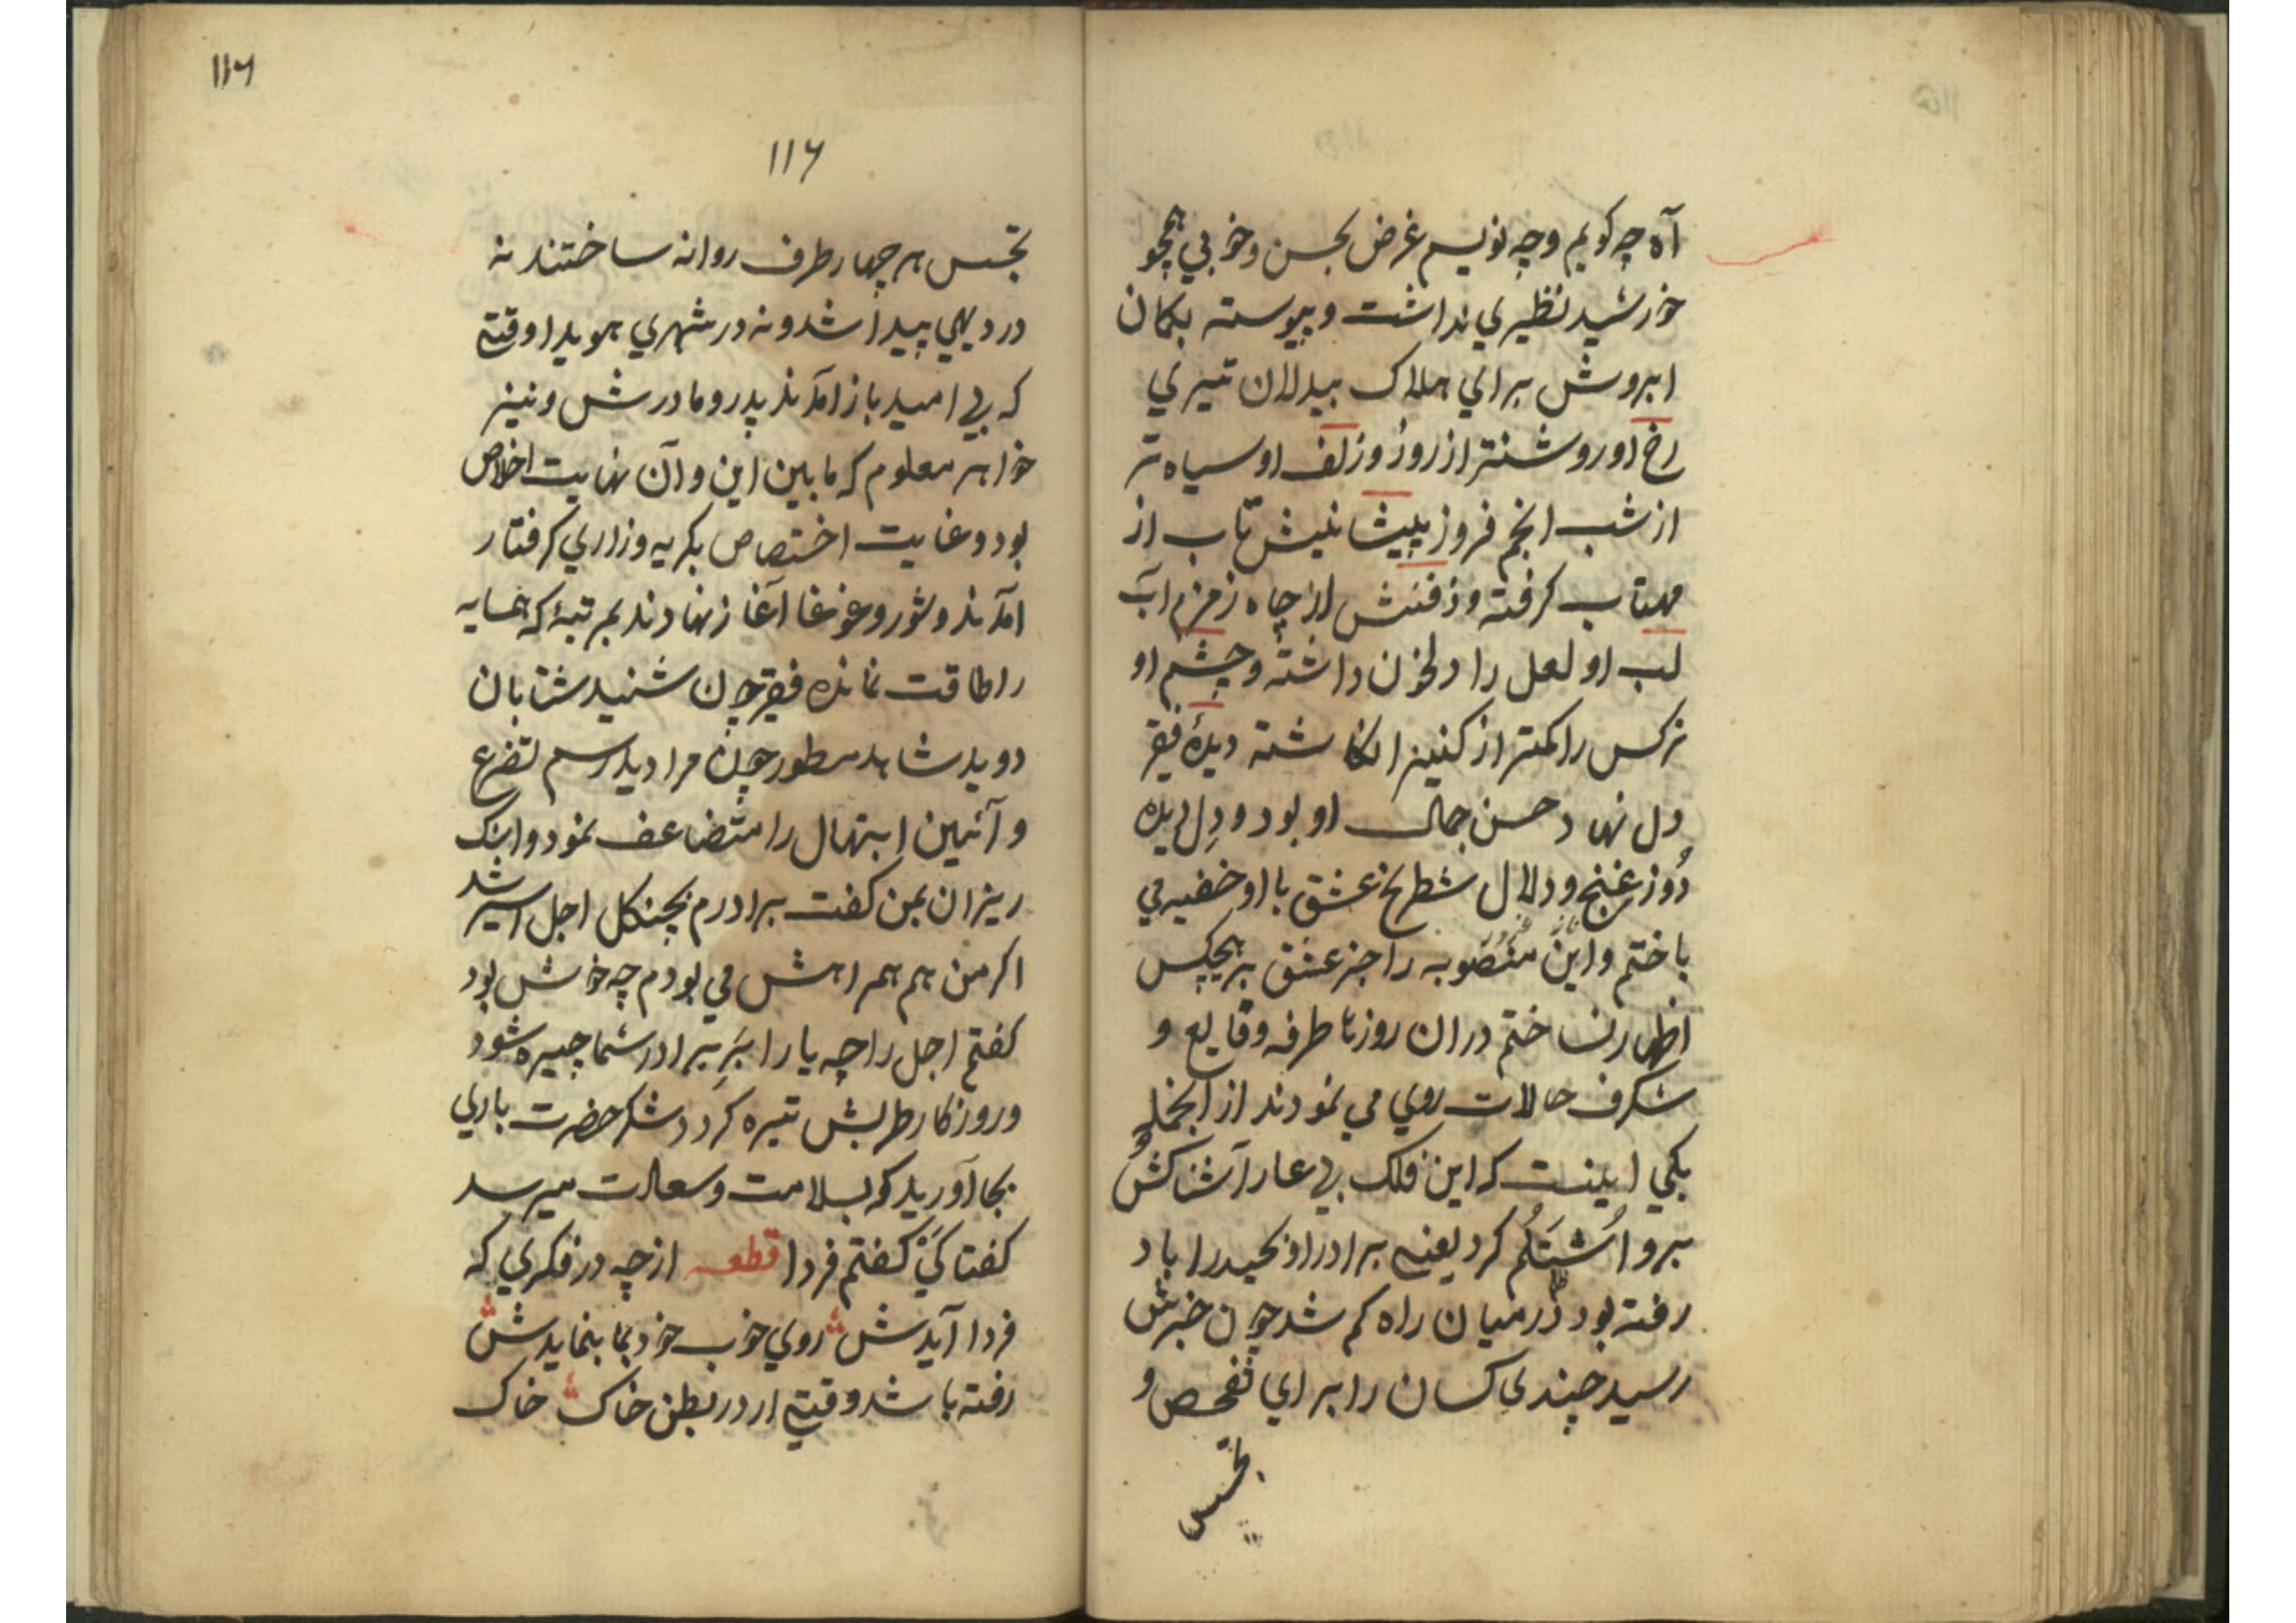 آه چه کویم وچه نویسم غرض بحسن وخوبي همچو
خورشید نظیري نداشت وپیوسته بکمان
ابروش براي هلاک بیدلان تیري
رخ او روشنتر از روز وزلف او سیاه تر
از شب انجم فروز پیشانیش تاب از
مهتاب کرفته وذقنش از چاه زمزم آب
لب او لعل را دلخون داشته وچشم او
نرکس را کمتر از کنیز انکاشته دیدهٔ فقیر
دل نهاد حسن جمال او بود ودل دیده
دوز غنج ودلال شطرنج عشق با او خفیه مي
باختم واین منصوبه را جز عشق بر هیچکس
اظهار نساختم دران روزها طرفه وقایع و
شکرف حالات روي مي نمودند از انجمله
یکي اینست که این فلک بی عار آشنا کش
برو اُشتَلُم کرد یعنے برادر او بحیدراباد
رفته بود در میان راه کم شد چون خبرش
رسید چندي کسان را براي تفحص و
تجسس
۱۱۶
۱۱۶
تجسس هر چهار طرف روانه ساختند نه
در دیهي پیدا شد ونه در شهري هویدا وقتے
که بی امید باز آمدند پدر ومادرش ونیز
خواهر معلوم که مابین این وآن نهایت اخلاص
بود وغایت اختصاص بکریه وزاري کرفتار
آمدند وشور وغوغا آغاز نهادند بمرتبهٔ که همسایه
را طاقت نمانده فقیر چون شنید شتابان
دوید شاهد مسطور چون مرا دید رسم تضرع
وآئین ابتهال را متضاعف نمود واشک
ریزان بمن کفت برادرم بچنکل اجل اسیر شد
اکر من هم همراهش مي بودم چه خوش بود
کفتم اجل را چه یارا بَرِ برادر شما چیره شود
وروزکار طربش تیره کردد شکر حضرت باري
بجا آورید که بسلامت وسعادت میرسد
کفتا کَيْ کفتم فردا قطعه از چه در فکري که
فردا آیدش روي خوب خود بما بنمایدش
رفته باشد وقتے ار در بطن خاک خاک